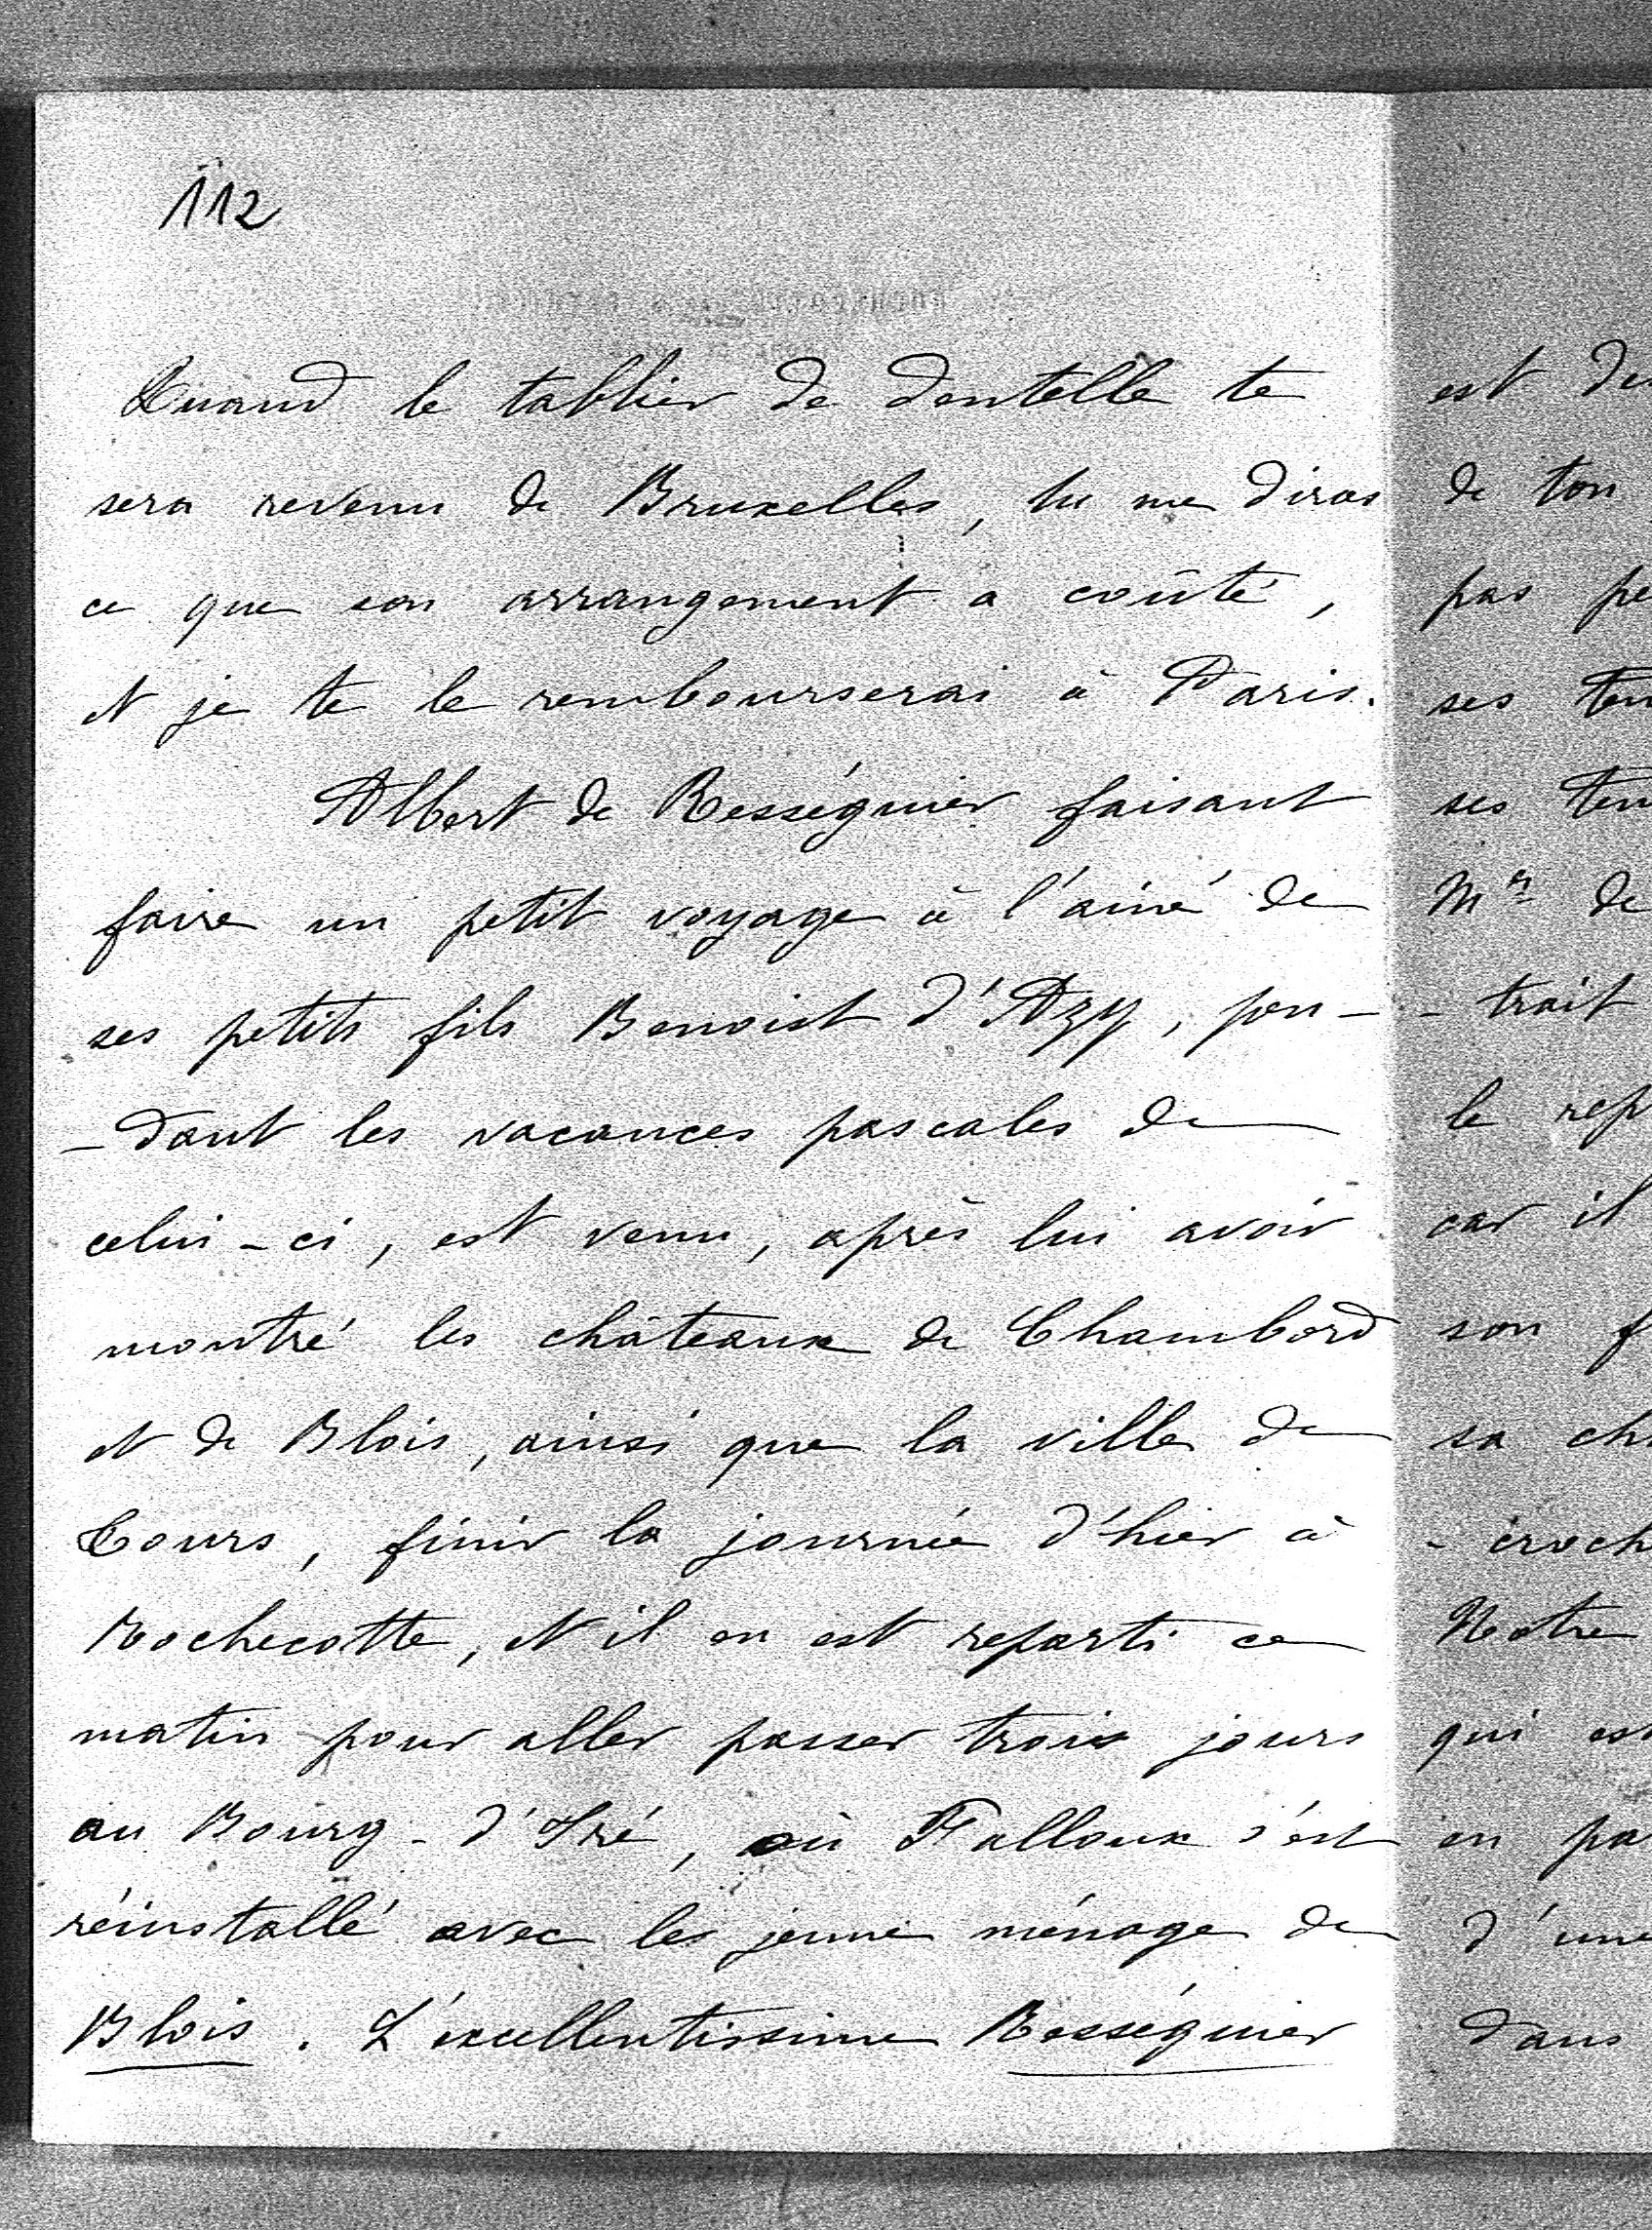 112
Quand le tablier de dentelle te
sera revenu de Bruxelles, tu me diras
ce que son arrangement a coûté,
et je te le rembourserai à Paris.
Albert de Rességuier faisant
faire un petit voyage à l'ainé de
ses petits fils Benoist d'Azy, pen-
-dant les vacances pascales de
celui-ci, est venu, après lui avoir
montré les châteaux de Chambord
et de Blois, ainsi que la ville de
Tours, finir la journée d'hier à
Rochecotte, et il en est reparti ce
matin pour aller passer trois jours
au Bourg-d'Iré, où Falloux s'est
réinstallé avec le jeune ménage de
Blois. L'excellentissime Rességuier
est de
de ton
pas pe
ses
ses
Mr de
-trait
le rep
car il
son f
sa ch
-croch
Notre
qui est
en pa
d'une
dans